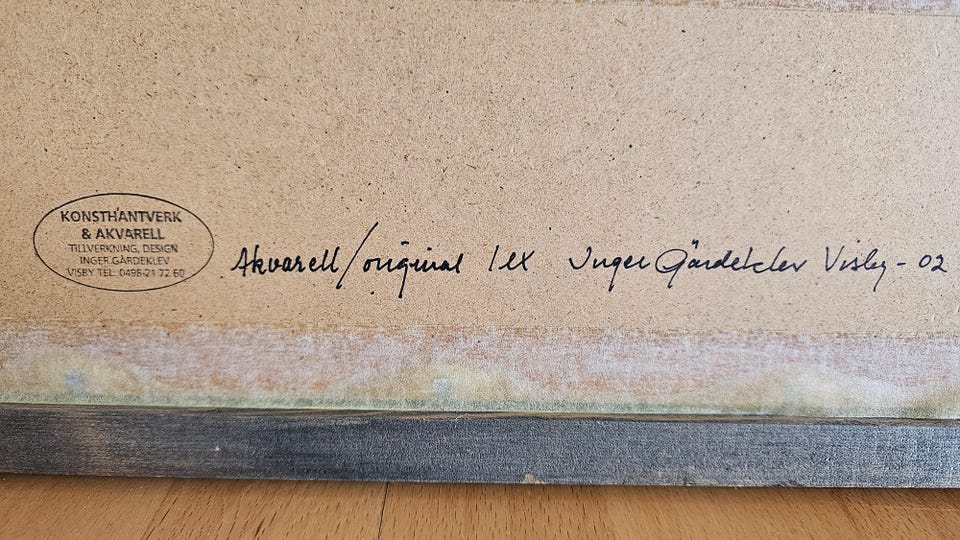 KONSTHANTVERK
& AKVARELL
TILLVERKNING, DESIGN
INGER GÄRDEKLEV
VISBY TEL. 0498-21 72 60
Akvarell/original 1 ex Inger Gärdeklev Visby - 02